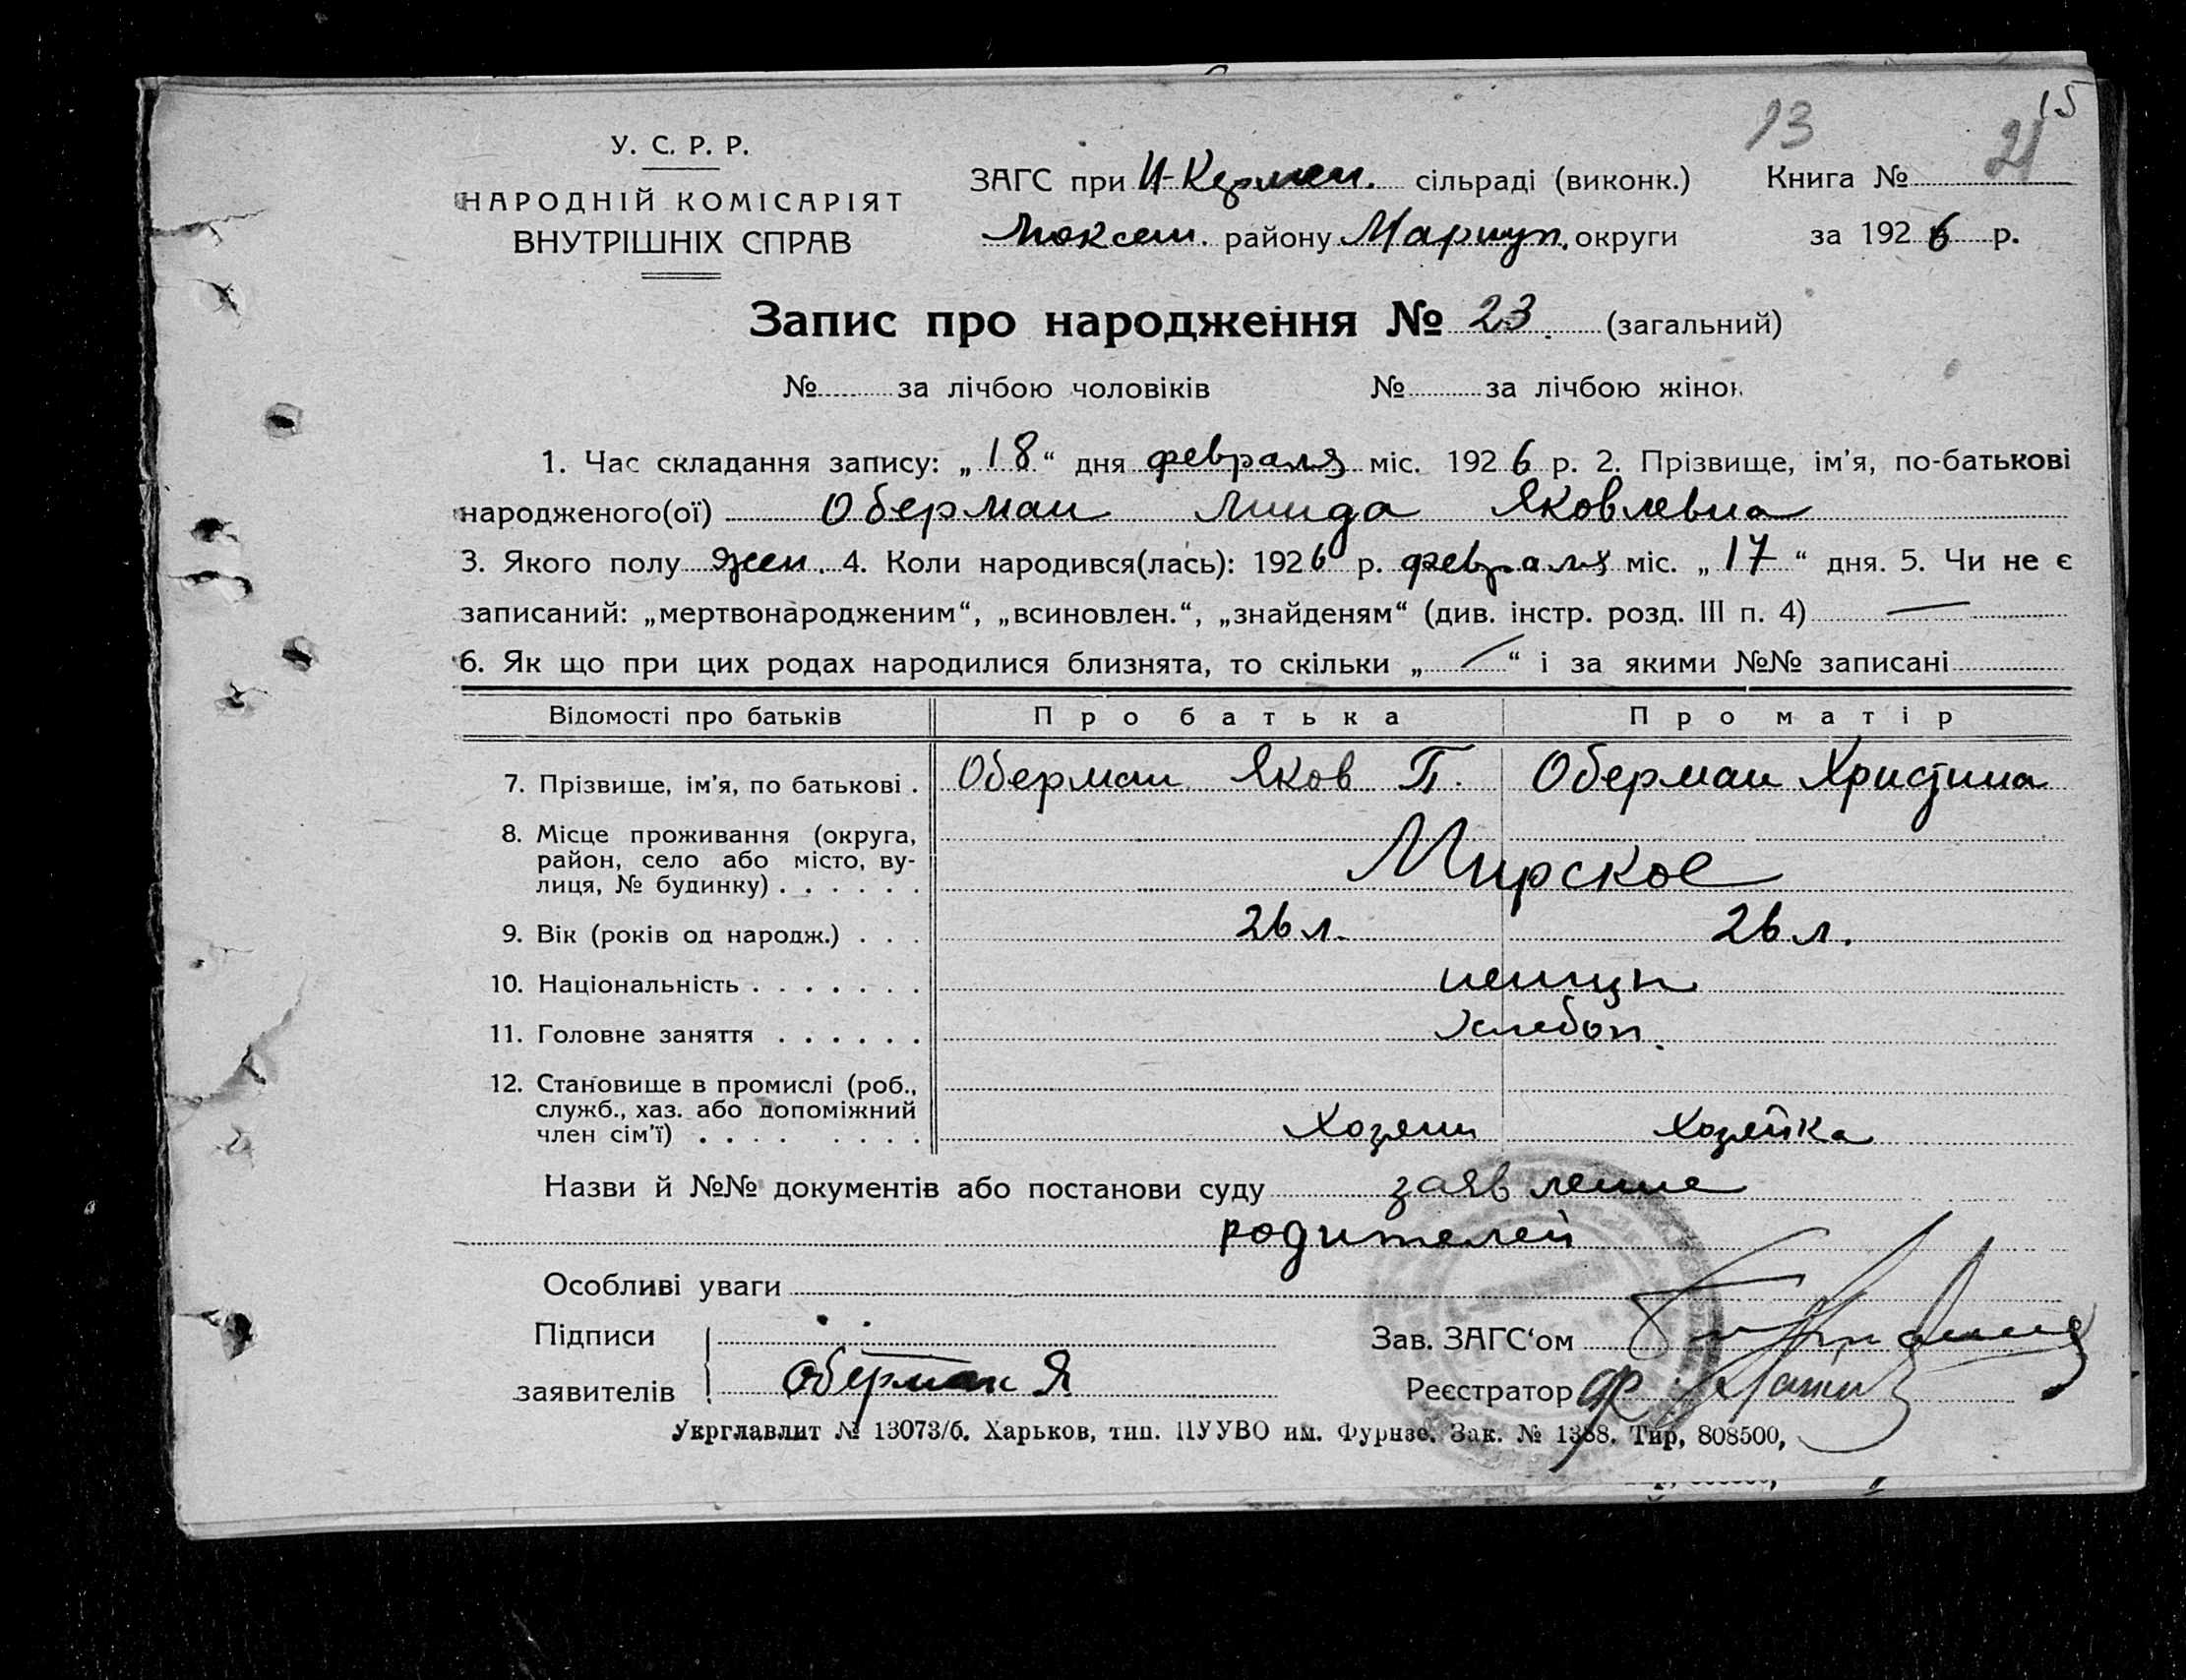 15
93
21
У. С. Р. Р.
НАРОДНІЙ КОМІСАРІЯТ
ВНУТРІШНІХ СПРАВ
ЗАГС при И-Кермен. сільраді (виконк.) Книга №
Люксем. району Мариуп. округи за 1926 р.
Запис про народження № 23. (загальний)
№ за лічбою чоловіків № за лічбою жінок
1. Час складання запису: „18“ дня февраля міс. 1926 р. 2. Прізвище, ім'я, по-батькові
народженого(ої) Оберман Линда Яковлевна
3. Якого полу жен. 4. Коли народився(лась): 1926 р. февраля міс. „17“ дня. 5. Чи не є
записаний: „мертвонародженим“, „всиновлен.“, „знайденям“ (див. інстр. розд. III п. 4) —
6. Як що при цих родах народилися близнята, то скільки „—“ і за якими №№ записані
Відомості про батьків Про батька Про матір
7. Прізвище, ім'я, по батькові . Оберман Яков П. Оберман Христина
8. Місце проживання (округа,
район, село або місто, ву-
лиця, № будинку) . . . . . . Мирское
9. Вік (років од народж.) . . . 26 л. 26 л.
10. Національність . . . . . . . немцы
11. Головне заняття . . . . . . хлебоп.
12. Становище в промислі (роб.,
служб., хаз. або допоміжний
член сім'ї) . . . . . . . . Хозяин Хозяйка
Назви й №№ документів або постанови суду заявление
родителей
Особливі уваги
Підписи
Зав. ЗАГС‘ом
заявителів Оберман Я
Реєстратор
Укрглавлит № 13073/б. Харьков, тип. ПУУВО им. Фурнзе. Зак. № 1388. Тир, 808500,